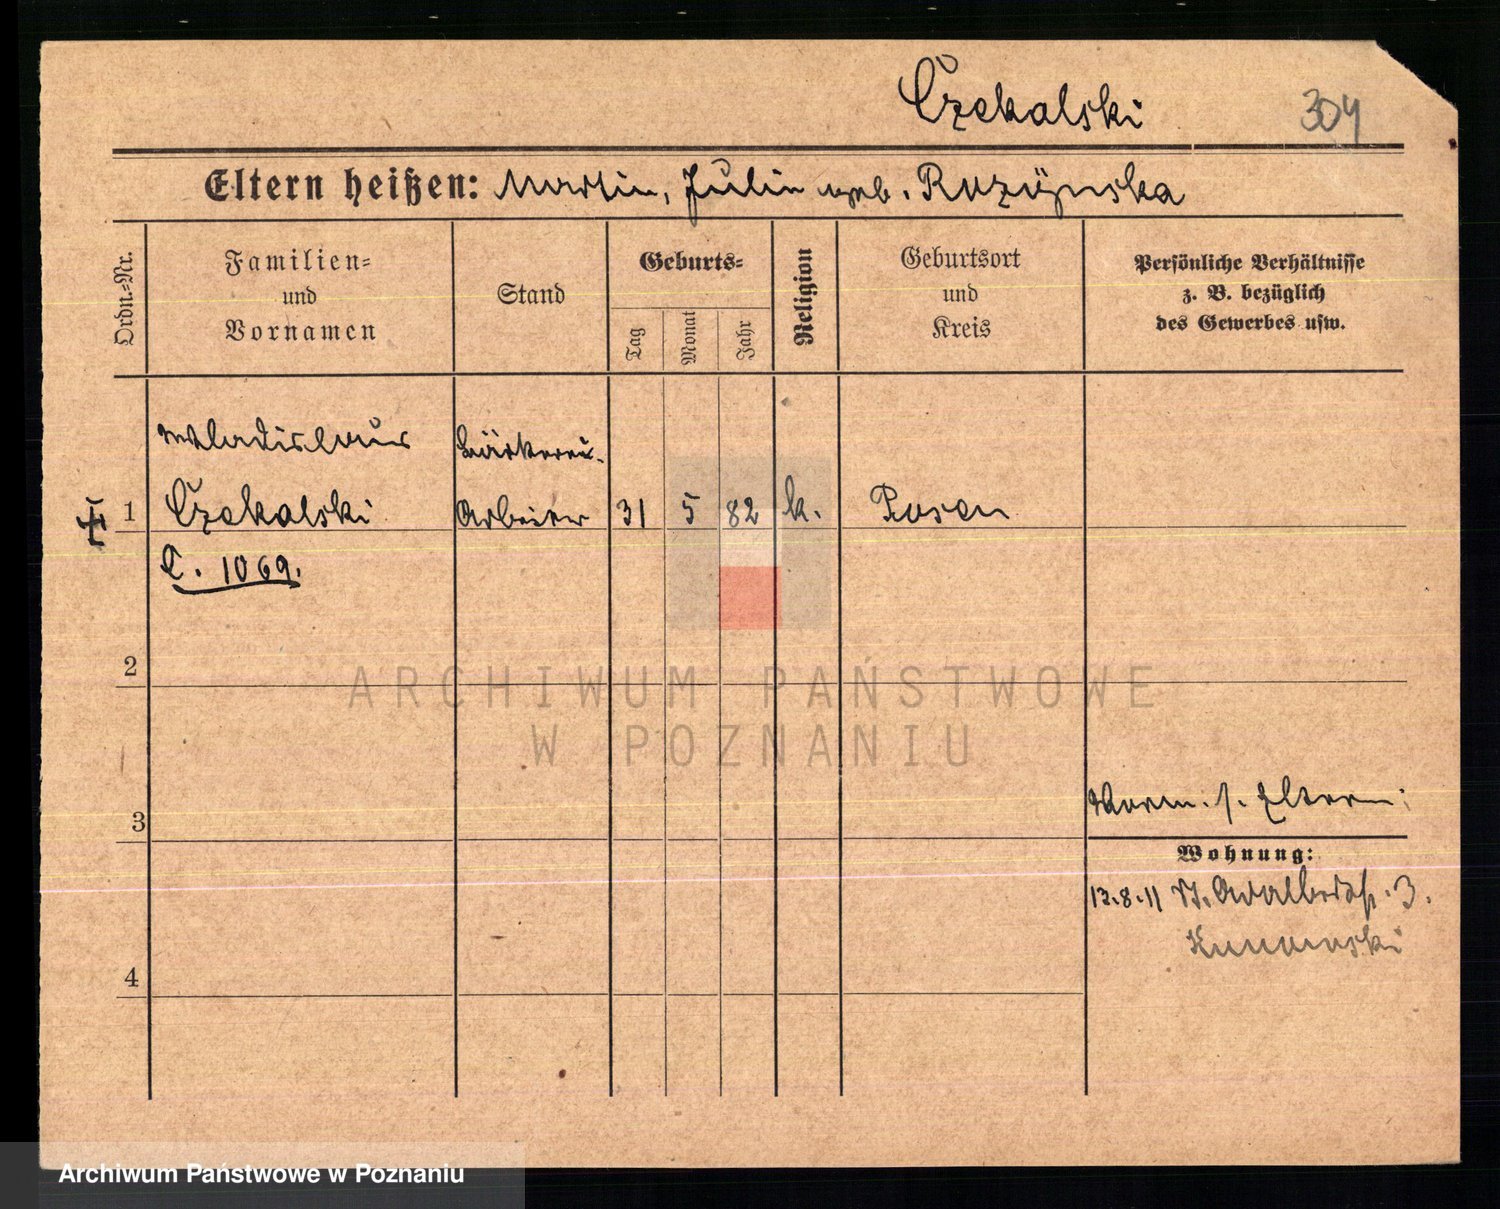 Czekalski 304
Eltern heißen: Martin, Julia geb. Rozynska
Ordn.-Nr.
Familien-
und
Vornamen
Stand
Geburts-
Tag
Monat
Jahr
Religion
Geburtsort
und
Kreis
Persönliche Verhältnisse
z. B. bezüglich
des Gewerbes usw.
Wladislaus
1 Czekalski Arbeiter 31 5 82 k. Posen
C. 1069.
2
ARCHIWUM PAŃSTWOWE
W POZNANIU
Vorm. s. Eltern:
3
Wohnung:
13.8.11 St. Adalbertstr. 3.
4
Archiwum Państwowe w Poznaniu